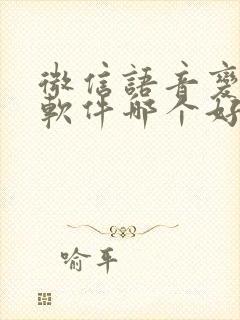 微信語音變
軟件哪个好
喻平